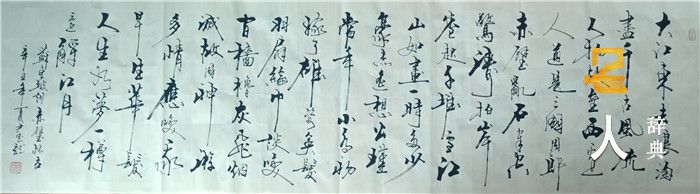 大江東去浪淘
盡千古風流
人物故壘西邊
人道是三國周郎
赤壁亂石
驚濤拍岸
卷起千堆雪江
山如畫一時多少
豪杰遥想公瑾
當年小喬初
嫁了雄姿英髮
羽扇綸巾談笑
間檣櫓灰飛烟
滅故國神游
多情應笑我
早生華髮
人生如夢一樽
還酹江月
蘇東坡詞赤壁懷古
辛丑年夏
人
辞典